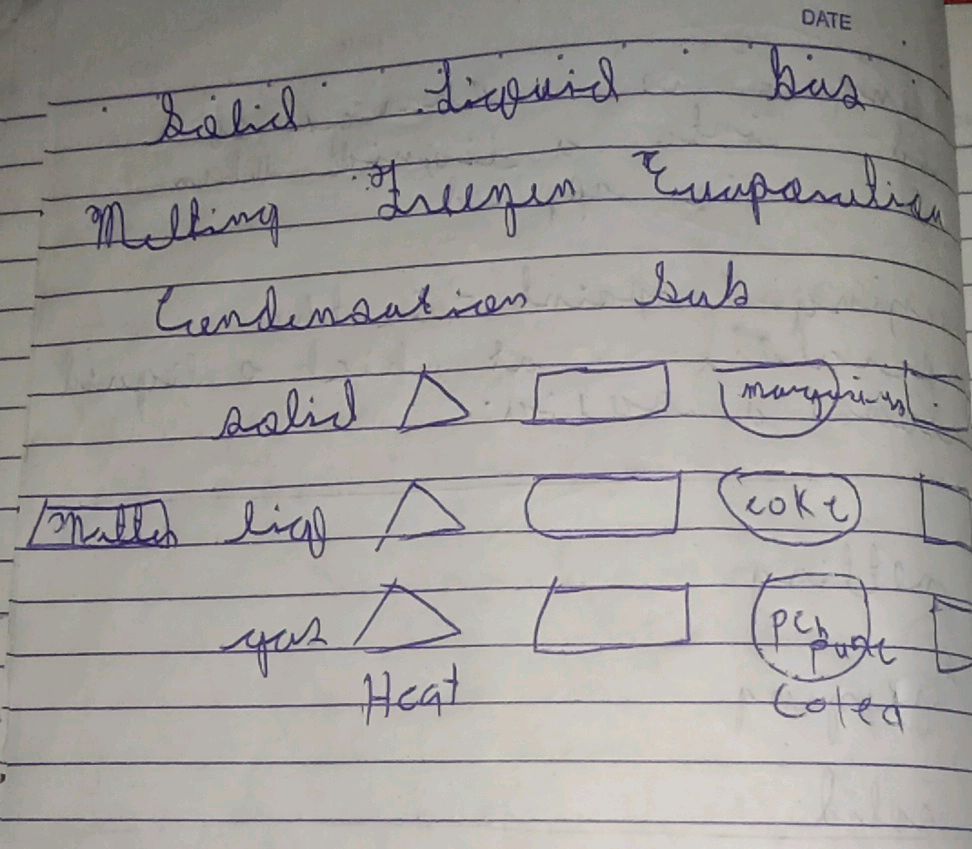 DATE
Solid Liquid Gas
Melting Freezen Evaporation
Condensation Sub
solid
Matter liqd coke
gas
Heat Coted